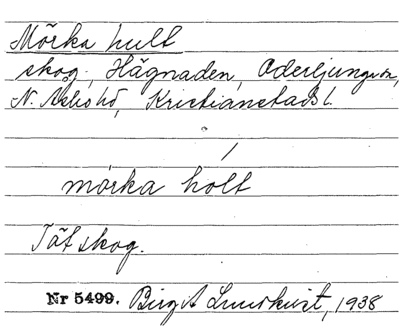 Mörka hult
skog, Hägnaden, Oderljunga sn,
N. Åsbo hd, Kristianstads l.
mórka hólt
Tät skog.
Nr 5499. Birgit Lundkvist, 1938